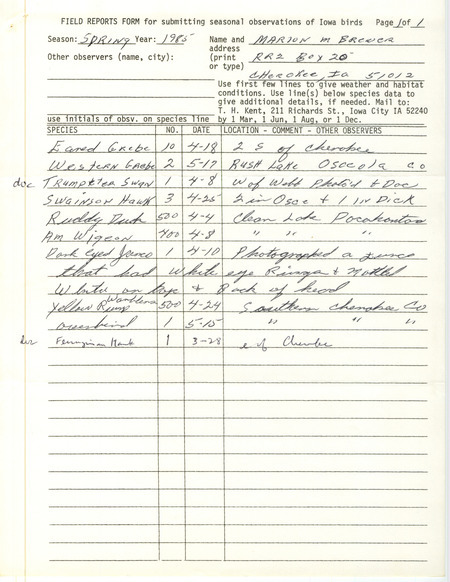 FIELD REPORTS FORM for submitting seasonal observations of Iowa birds Page 1 of 1
Season: SPRING Year: 1985 Name and MARION M BREWER
address
Other observers (name, city): (print RR2 Box 20
or type)
CHEROKEE, Ia 51012
Use first few lines to give weather and habitat
conditions. Use line(s) below species data to
give additional details, if needed. Mail to:
T. H. Kent, 211 Richards St., Iowa City IA 52240
use initials of obsv. on species line by 1 Mar, 1 Jun, 1 Aug, or 1 Dec.
SPECIES NO. DATE LOCATION - COMMENT - OTHER OBSERVERS
Eared Grebe 10 4-18 2 S of Cherokee
Western Grebe 2 5-17 Rush Lake Osceola Co
doc Trumpeter Swan 1 4-8 W of Webb Photo'd + Doc
Swainson Hawk 3 4-25 2 in Osce + 1 in Dick
Ruddy Duck 500 4-4 Clean Lake Pocahontas
Am Wigeon 400 4-8 " " "
Dark Eyed Junco 1 4-10 Photographed a junco
that had white eye Rings & Mottled
White on & Back of head
Yellow Rump Warblers 500 4-24 Southern Cherokee Co
ovenbird 1 5-15 " " "
doc Ferruginous Hawk 1 3-28 e of Cherokee